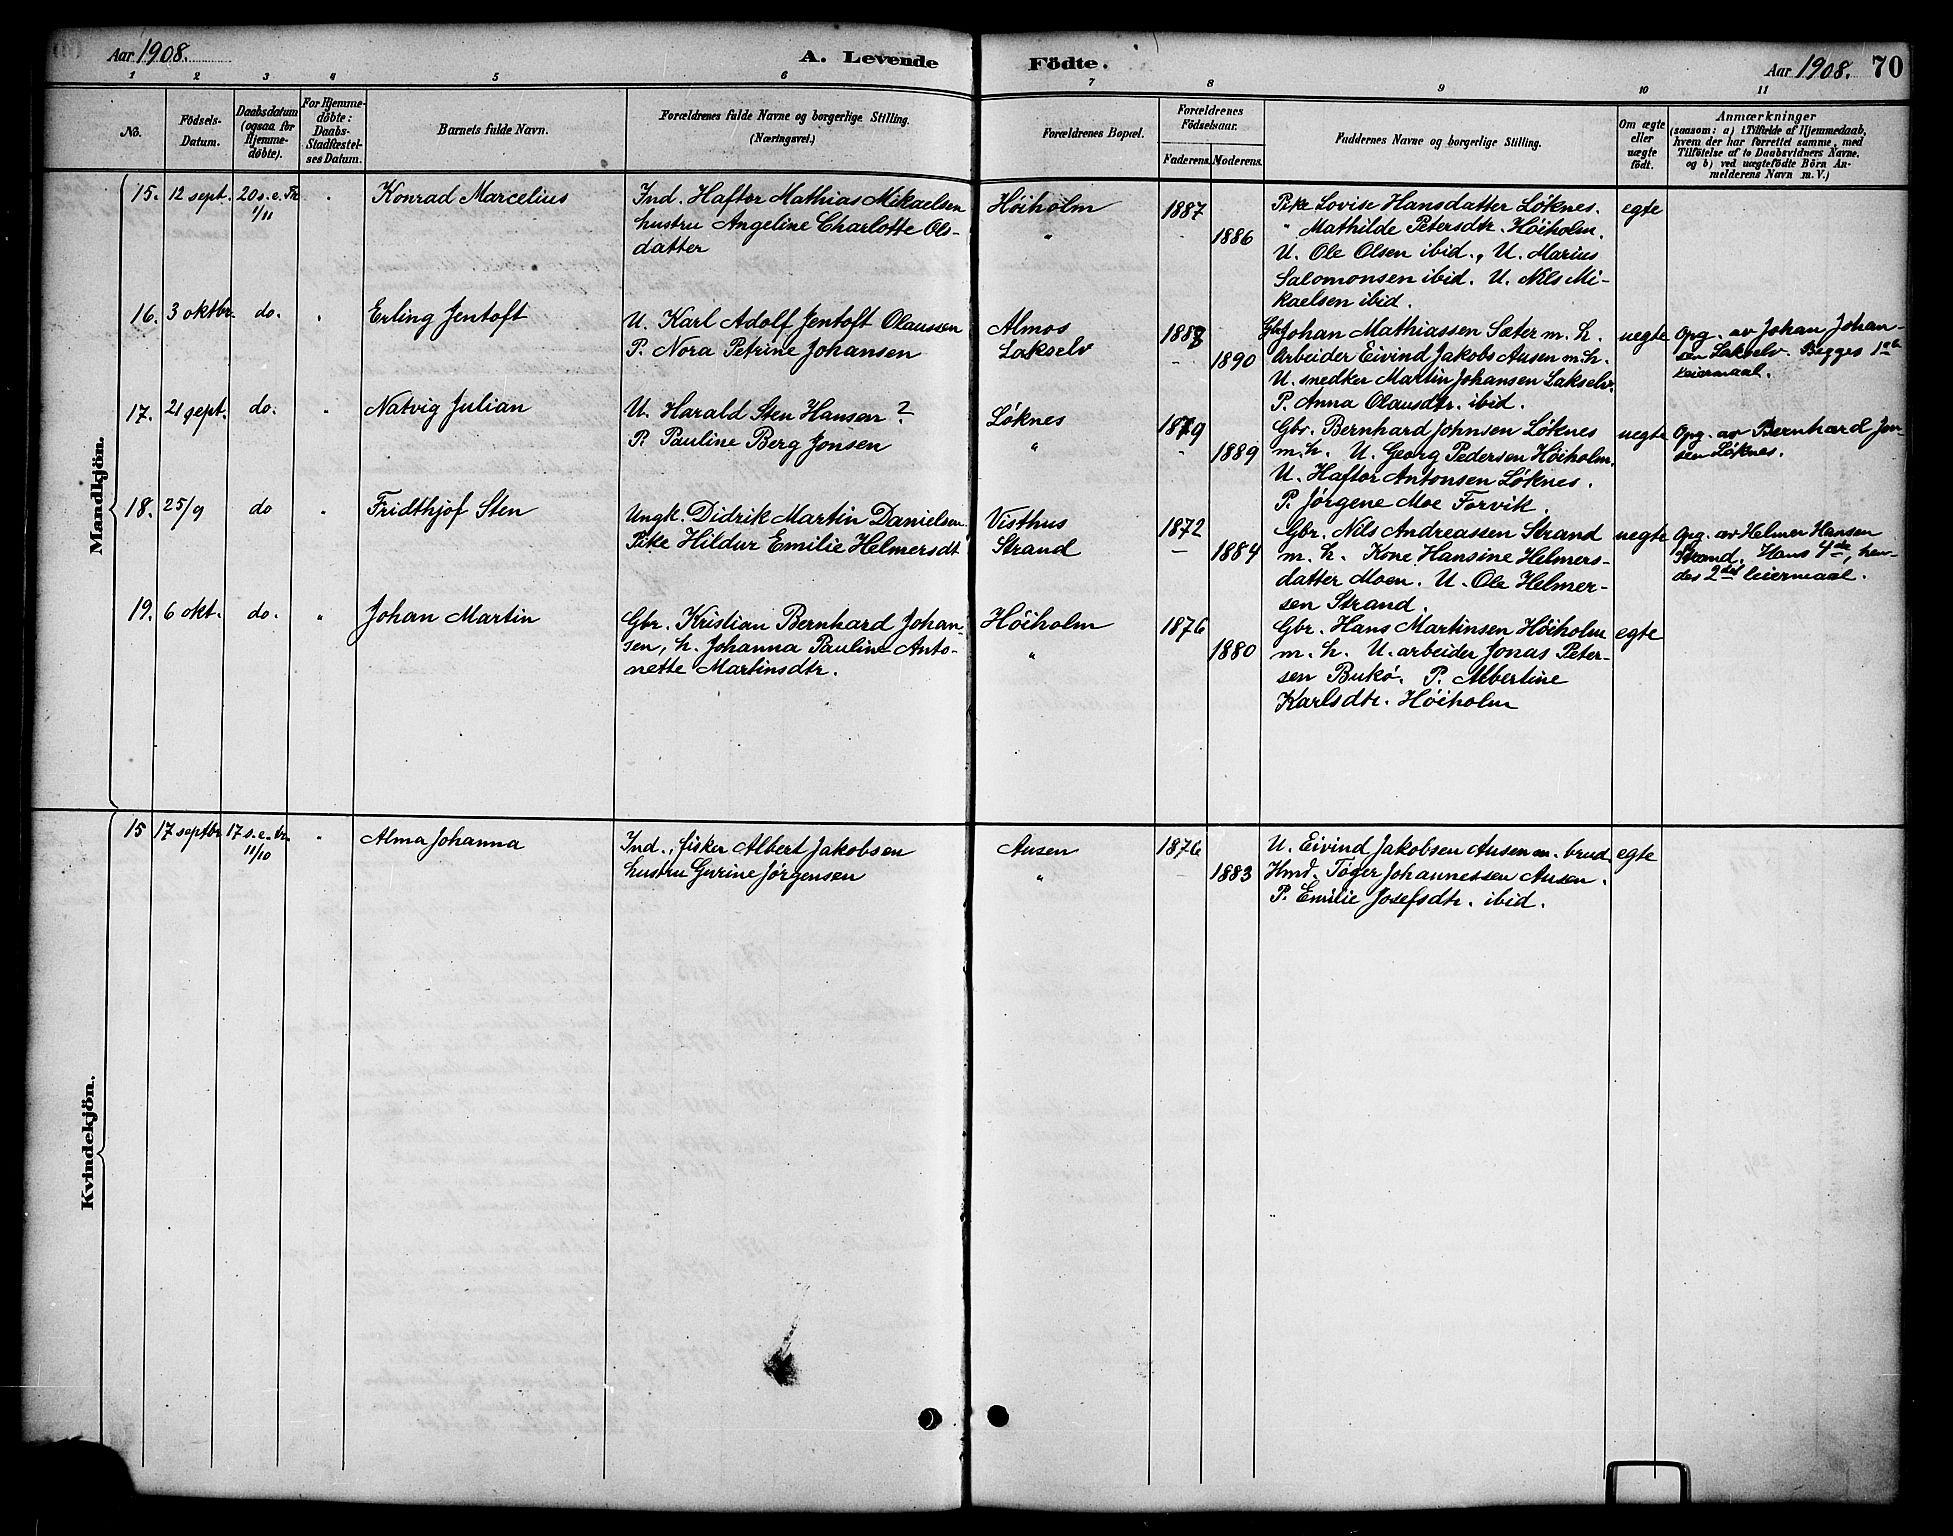 Aar 1908.
A. Levende
Födte.
Aar 1908.
70
1 2 3 4 5 6 7 8 9 10 11
No.
Födsels-
Datum.
Daabsdatum
(ogsaa for
Hjemme-
döbte).
For Hjemme-
döbte:
Daabs-
Stadfæstel-
ses Datum.
Barnets fulde Navn.
Forældrenes fulde Navne og borgerlige Stilling.
(Næringsvei.)
Forældrenes Bopæl.
Forældrenes
Födselsaar.
Faderens.
Moderens.
Faddernes Navne og borgerlige Stilling.
Om ægte
eller
uægte
födt.
Anmærkninger
(saasom: a) i Tilfælde af Hjemmedaab,
hvem der har forrettet samme, med
Tilföielse af to Daabsvidners Navne,
og b) ved uægtefödte Börn An-
melderens Navn m. V.)
Mandkjön.
15. 12 sept. 20 s. e. Tr.
1/11
Konrad Marcelius
Ind. Haftor Mathias Mikaelsen
hustru Angeline Charlotte Ols-
datter
Höiholm
"
1887
1886
Pike Lovise Hansdatter Løknes.
" Mathilde Petersdtr. Höiholm.
U. Ole Olsen ibid., U. Marius
Salomonsen ibid. U. Nils Mi-
kaelsen ibid.
egte
16. 3 oktbr. do. "
Erling Jentoft
U. Karl Adolf Jentoft Olaussen
P. Nora Petrine Johansen
Almos
Lakselv
1888
1890
Gbr Johan Mathiassen Sæter m. h.
Arbeider Eivind Jakobs Ausen m. h.
U. snedker Martin Johansen Lakselv.
P. Anna Olausdtr. ibid.
uegte
Opg. av Johan Johan-
sen Lakselv. Begges 1ste
leiermaal.
17. 21 sept. do. "
Natvig Julian
U. Harald Sten Hansen ?
P. Pauline Berg Jonsen
Løknes
"
1879
1889
Gbr. Bernhard Johnsen Løknes
m. h. U. Georg Pedersen Höiholm.
U. Haftor Antonsen Løknes.
P. Jørgene Moe Forvik.
uegte
Opg. av Bernhard Jon-
sen Løknes.
18. 25/9 do "
Fridthjof Sten
Ungk. Didrik Martin Danielsen
Pike Hildur Emilie Helmersdt
Visthus
Strand
1872
1884
Gbr. Nils Andreassen Strand
m. h. Kone Hansine Helmers-
datter Moen. U. Ole Helmer-
sen Strand.
uegte
Opg. av Helmer Hansen
Strand. Hans 4de, hen-
des 2det leiermaal.
19. 6 okt. do. "
Johan Martin
Gbr. Kristian Bernhard Johan-
sen, h. Johanna Pauline Anto-
nette Martinsdtr.
Höiholm
"
1876
1880
Gbr. Hans Martinsen Höiholm
m. h. U. arbeider Jonas Peter-
sen Bukø. P. Albertine
Karlsdtr. Höiholm
egte
Kvindekjön.
15 17 septbr 17 s. e. tr.
11/10
Alma Johanna
Ind., fisker Albert Jakobsen
hustru Gurine Jørgensen
Ausen
"
1876
1883
U. Eivind Jakobsen Ausen m. brud
Hmd. Tøger Johannessen Ausen.
P. Emilie Josefsdtr. ibid.
egte